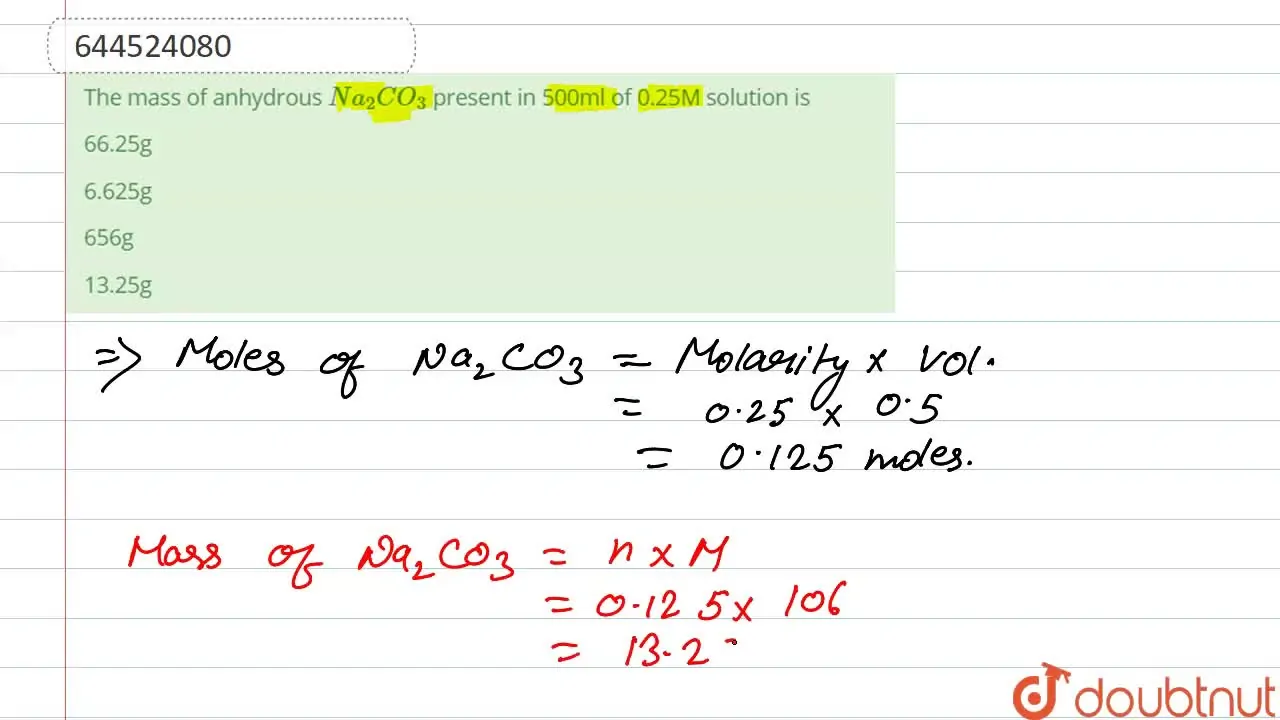 644524080
The mass of anhydrous Na₂CO₃ present in 500ml of 0.25M solution is
66.25g
6.625g
656g
13.25g
=> Moles of Na₂CO₃ = Molarity x Vol.
= 0.25 x 0.5
= 0.125 moles.
Mass of Na₂CO₃ = n x M
= 0.125 x 106
= 13.2
doubtnut